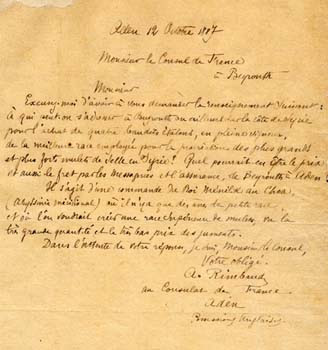 Aden 12 Octobre 1887
Monsieur le Consul de France
à Beyrouth
Monsieur
Excusez-moi d'avoir à vous demander le renseignement suivant :
à qui peut-on s'adresser à Beyrouth ou ailleurs sur la côte de Syrie
pour l'achat de quatre baudets étalons, en pleine vigueur,
de la meilleure race employée pour la procréation des plus grands
et plus forts mulets de selle en Syrie ? Quel pourrait en être le prix,
et aussi le fret par les Messageries et l'assurance, de Beyrouth à Aden ?
Il s'agit d'une commande du Roi Ménélik au Choa
(Abyssinie méridionale) où il n'y a que des ânes de petite race
et où l'on voudrait créer une race supérieure de mulets, vu la
très grande quantité et le très bas prix des juments.
Dans l'attente de votre réponse, je suis, Monsieur le Consul,
Votre obligé
A. Rimbaud
au Consulat de France
Aden
Possessions Anglaises